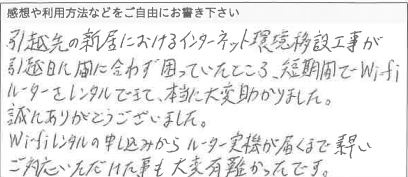 感想や利用方法などをご自由にお書き下さい
引越先の新居におけるインターネット環境移設工事が
引越日に間に合わず困っていたところ、短期間でWi-fi
ルーターをレンタルできて、本当に大変助かりました。
誠にありがとうございました。
Wi-fiレンタルの申し込みからルーター実機が届くまで素早い
ご対応いただけた事も大変有難かったです。